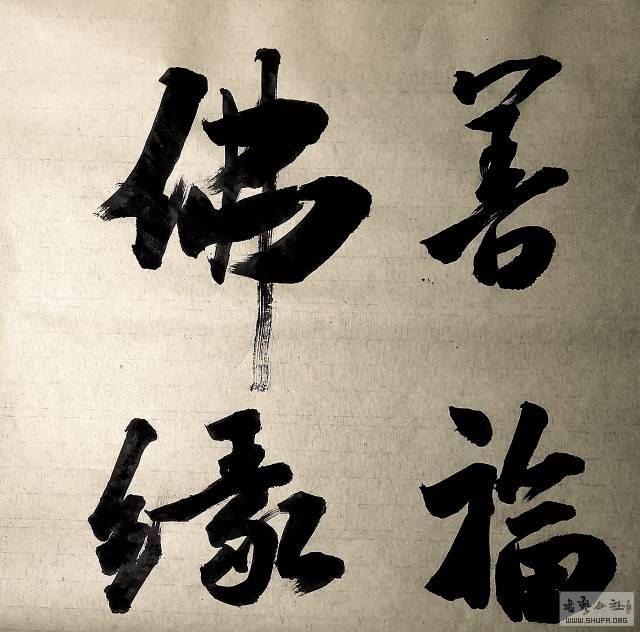 善福
佛缘
书艺公社
WWW.SHUFA.ORG